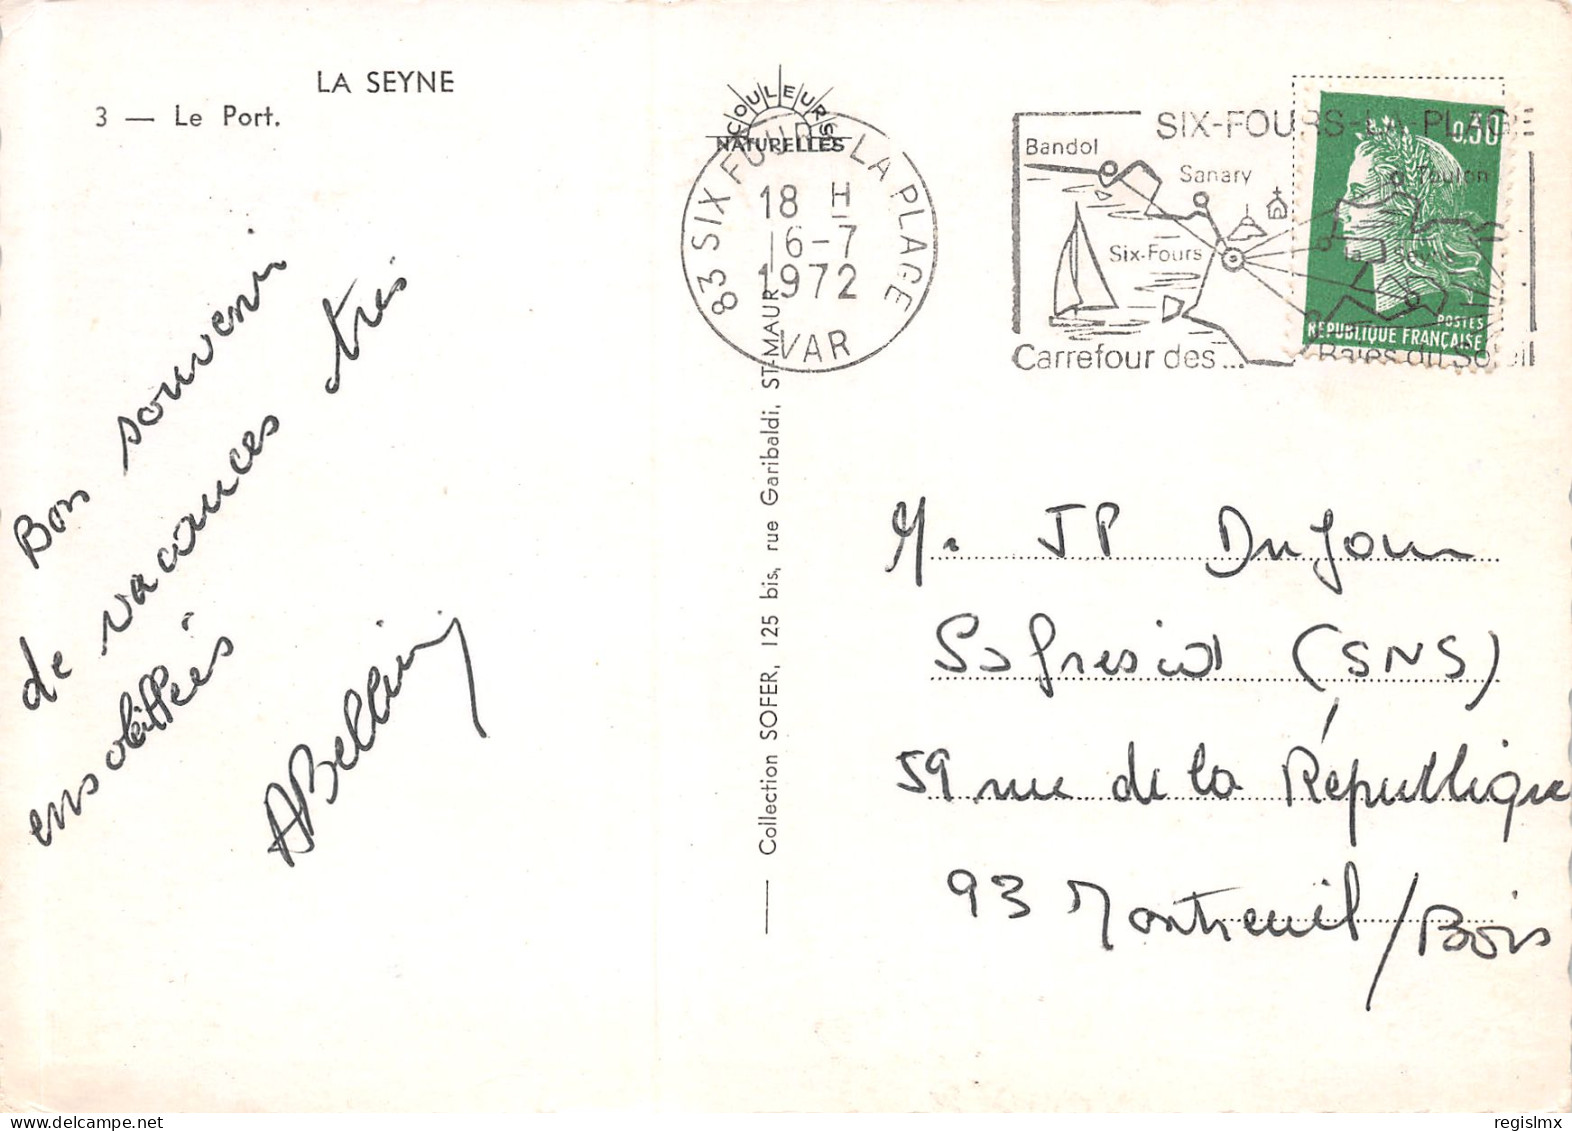 LA SEYNE
3 — Le Port.
Bon souvenir
de vacances très
ensoleillées
ABellini
COULEURS
NATURELLES
83 SIX FOURS LA PLAGE
18 H
16-7
1972
VAR
SIX-FOURS-LA-PLAGE
Bandol
Sanary
Toulon
Six-Fours
Seyne
Carrefour des... Baies du Soleil
0,30
POSTES
REPUBLIQUE FRANÇAISE
Collection SOFER, 125 bis, rue Garibaldi, ST-MAUR
M. JP Dujour
(SNS)
59 rue de la République
93 Montreuil/Bois
regislmx